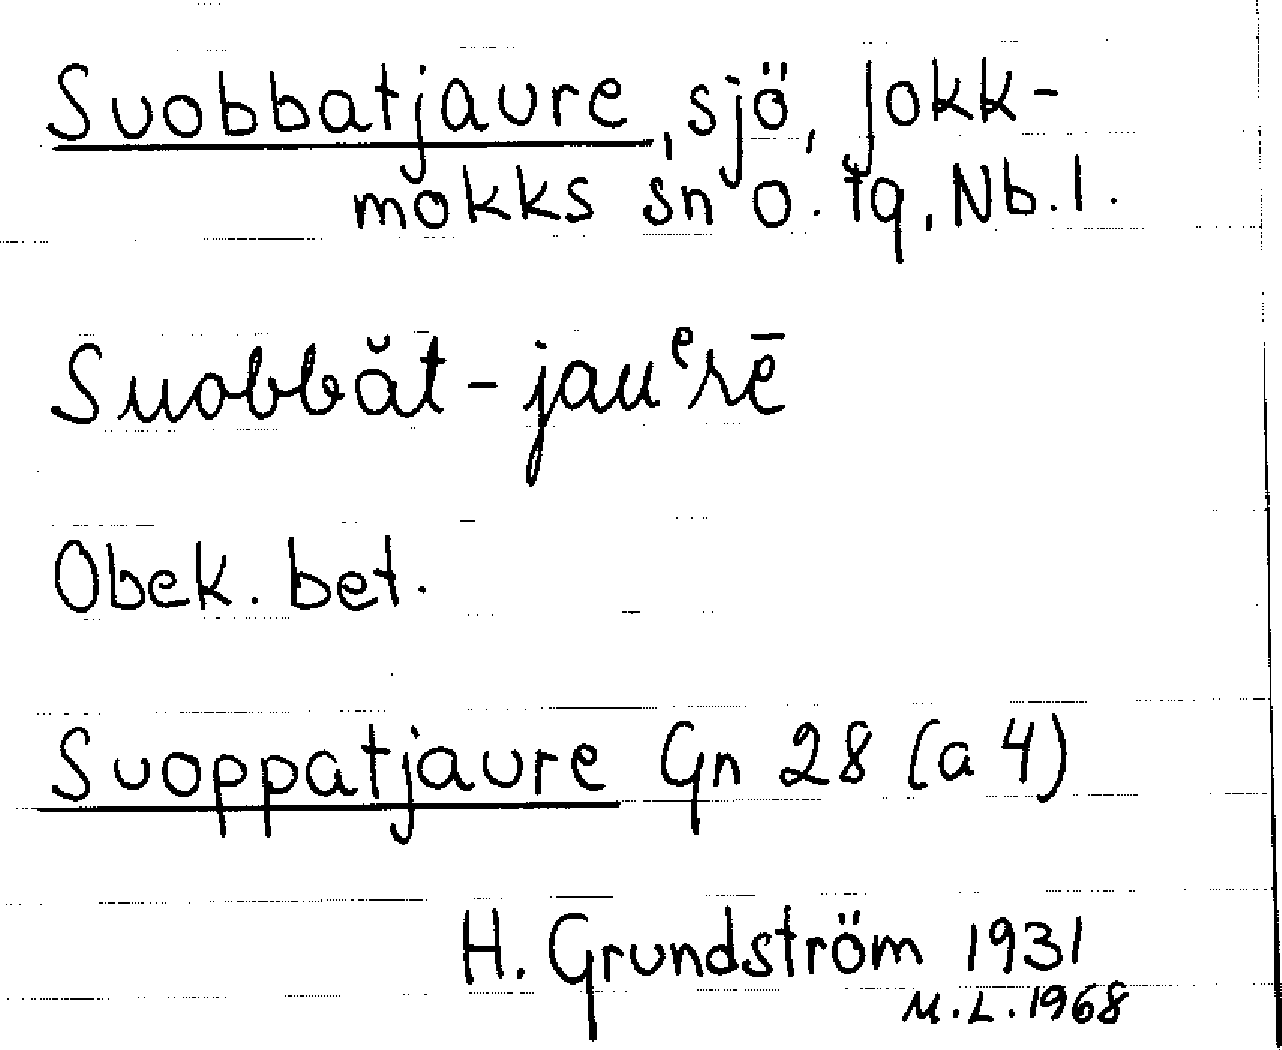 Suobbatjaure, sjö, Jokk-
mokks sn o. tg, Nb. l.
Suobbăt-jauᵉrē
Obek. bet.
Suoppatjaure Gn 28 (a 4)
H. Grundström 1931
M.L. 1968